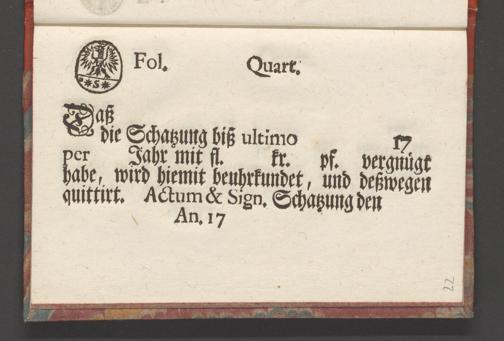 Fol. Quart.
*S*
Daß
die Schatzung biß ultimo 17
per Jahr mit fl. kr. pf. vergnügt
habe, wird hiemit beuhrkundet, und deßwegen
quittirt. Actum & Sign. Schatzung den
An. 17
22